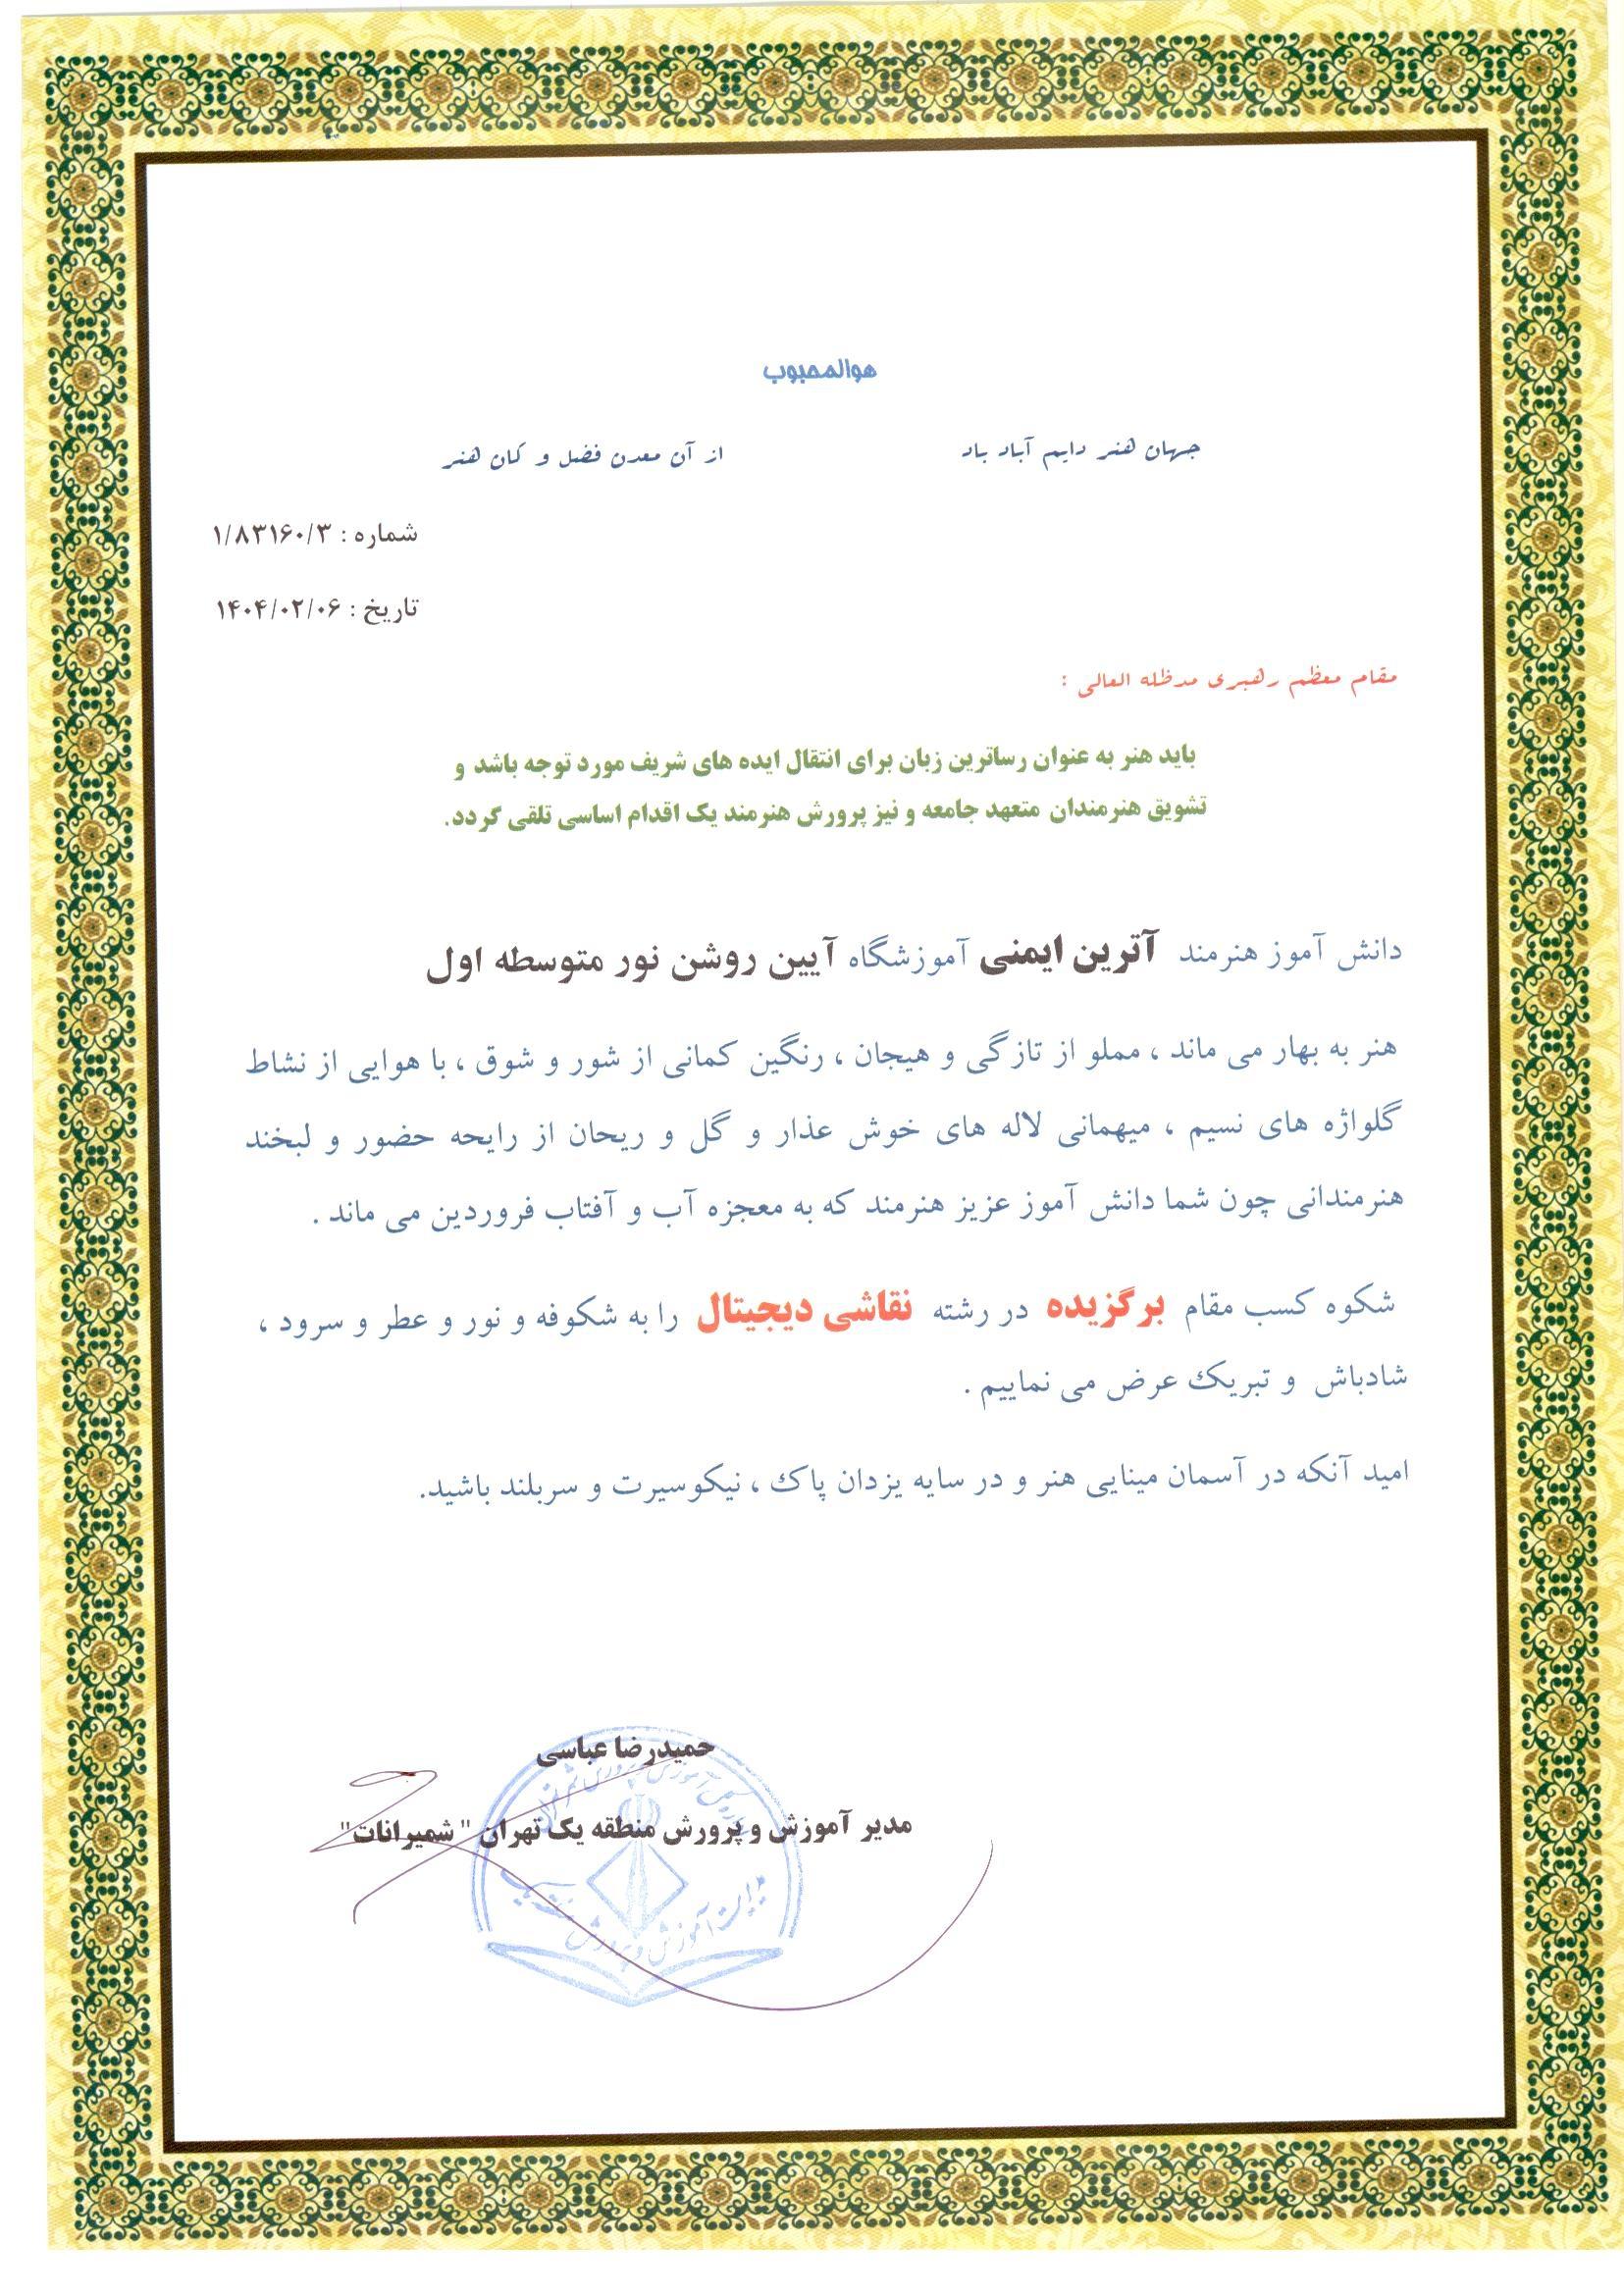 هوالمحبوب
جهان هنر دایم آباد باد از آن معدن فضل و کان هنر
شماره : ۱/۸۳۱۶۰/۳
تاریخ : ۱۴۰۴/۰۲/۰۶
مقام معظم رهبری مدظله العالی :
باید هنر به عنوان رساترین زبان برای انتقال ایده های شریف مورد توجه باشد و
تشویق هنرمندان متعهد جامعه و نیز پرورش هنرمند یک اقدام اساسی تلقی گردد.
دانش آموز هنرمند آترین ایمنی آموزشگاه آیین روشن نور متوسطه اول
هنر به بهار می ماند ، مملو از تازگی و هیجان ، رنگین کمانی از شور و شوق ، با هوایی از نشاط
گلواژه های نسیم ، میهمانی لاله های خوش عذار و گل و ریحان از رایحه حضور و لبخند
هنرمندانی چون شما دانش آموز عزیز هنرمند که به معجزه آب و آفتاب فروردین می ماند .
شکوه کسب مقام برگزیده در رشته نقاشی دیجیتال را به شکوفه و نور و عطر و سرود ،
شادباش و تبریک عرض می نماییم .
امید آنکه در آسمان مینایی هنر و در سایه یزدان پاک ، نیکوسیرت و سربلند باشید.
حمیدرضا عباسی
مدیر آموزش و پرورش منطقه یک تهران " شمیرانات"